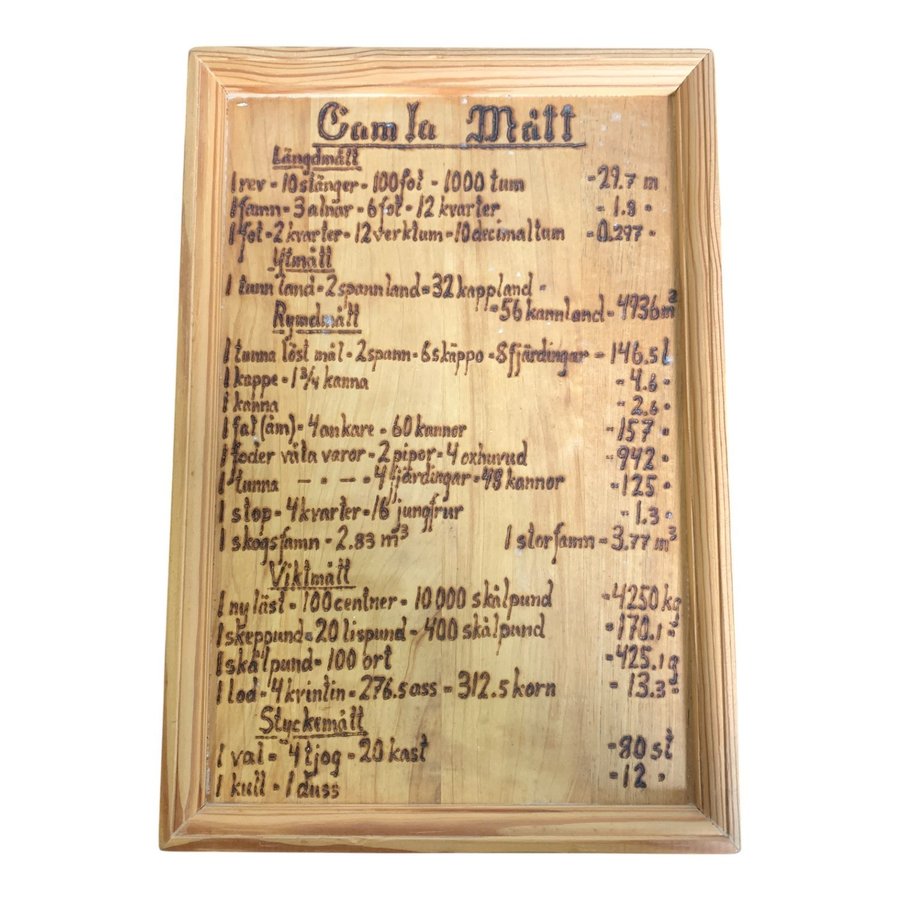 Gamla Mått
Längdmått
1 rev - 10 stänger - 100 fot - 1000 tum - 29.7 m
1 famn - 3 alnar - 6 fot - 12 kvarter - 1.8 "
1 fot - 2 kvarter - 12 verktum - 10 decimaltum - 0.297 "
Ytmått
1 tunnland - 2 spannland - 32 kappland -
- 56 kannland - 4936 m²
Rymdmått
1 tunna löst mål - 2 spann - 6 skäppo - 8 fjärdingar - 146.5 l
1 kappe - 1 3/4 kanna - 4.6 "
1 kanna - 2.6 "
1 fat (åm) - 4 ankare - 60 kannor - 157 "
1 foder våta varor - 2 pipor - 4 oxhuvud - 942 "
1 tunna - " - - 4 fjärdingar - 48 kannor - 125 "
1 stop - 4 kvarter - 16 jungfrur - 1.3 "
1 skogsfamn - 2.83 m³ 1 storfamn - 3.77 m³
Viktmått
1 ny läst - 100 centner - 10 000 skålpund - 4250 kg
1 skeppund - 20 lispund - 400 skålpund - 170.1 "
1 skålpund - 100 ort - 425.1 g
1 lod - 4 kvintin - 276.5 ass - 312.5 korn - 13.3 "
Styckemått
1 val - 4 tjog - 20 kast - 80 st
1 kull - 1 duss - 12 "